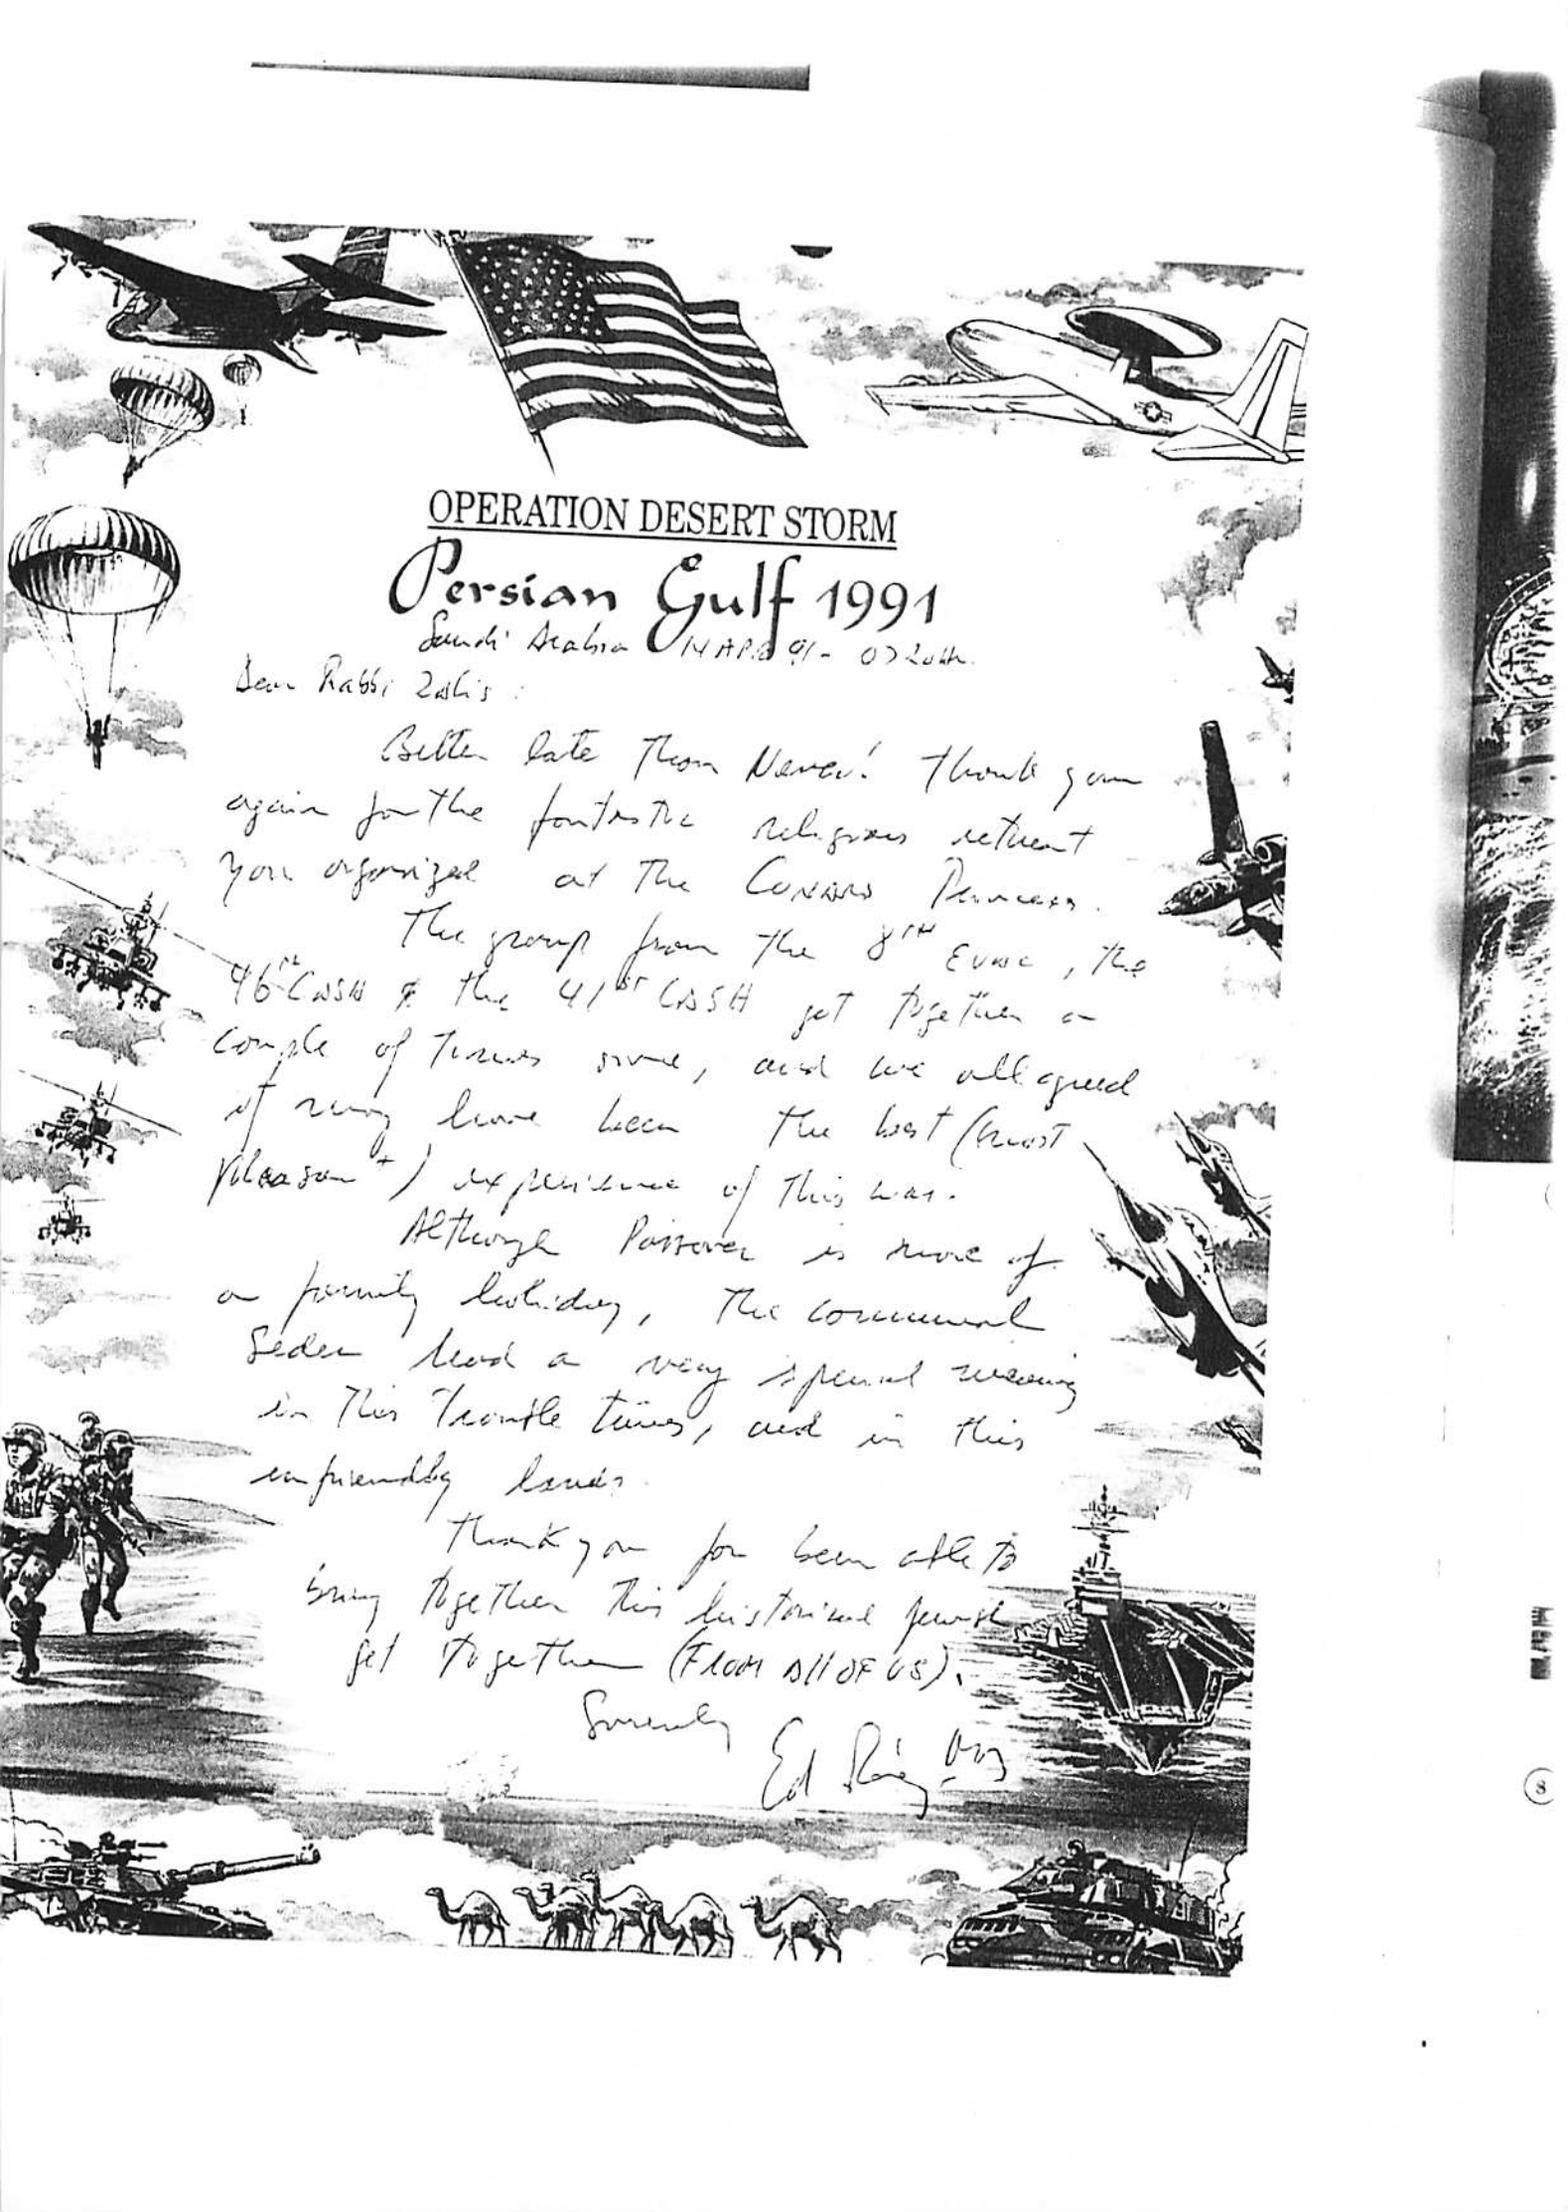 OPERATION DESERT STORM
Persian Gulf 1991
Saudi Arabia 14 APR 91 - 0720H.
Dear Rabbi
Better late than Never! Thank you
again for the fantastic religious retreat
you organized at the CUNARD Princess.
The group from the 8TH Evac, the
46th CASH & the 41ST CASH got together a
couple of times since, and we all agreed
it may have been the best (most
pleasant) experience of this war.
Although Passover is more of
a family holiday, the communal
Seder had a very special meaning
in this trouble times, and in this
unfriendly lands.
Thank you for been able to
bring together this historical Jewish
get together (FROM All OF US).
Sincerely
Ed
8